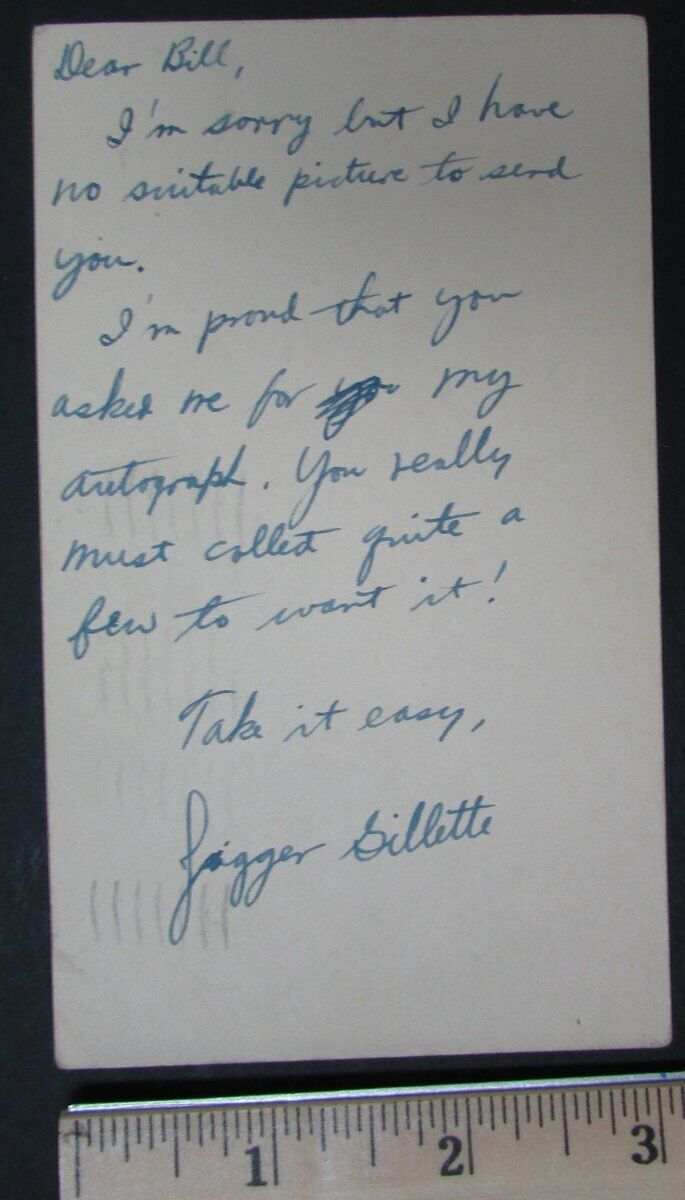 Dear Bill,
I'm sorry but I have
no suitable picture to send
you.
I'm proud that you
asked me for my
autograph. You really
must collect quite a
few to want it!
Take it easy,
Jigger Gillette
1 2 3